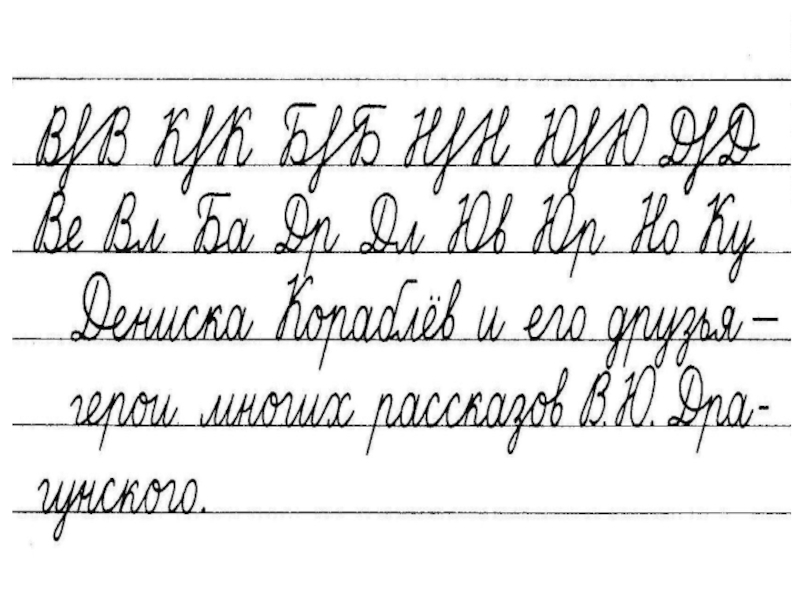 В∫В К∫К Б∫Б Н∫Н Ю∫Ю Д∫Д
Ве Вл Ба Др Дл Юв Юр Но Ку
Дениска Кораблёв и его друзья –
герои многих рассказов В.Ю. Дра-
гунского.